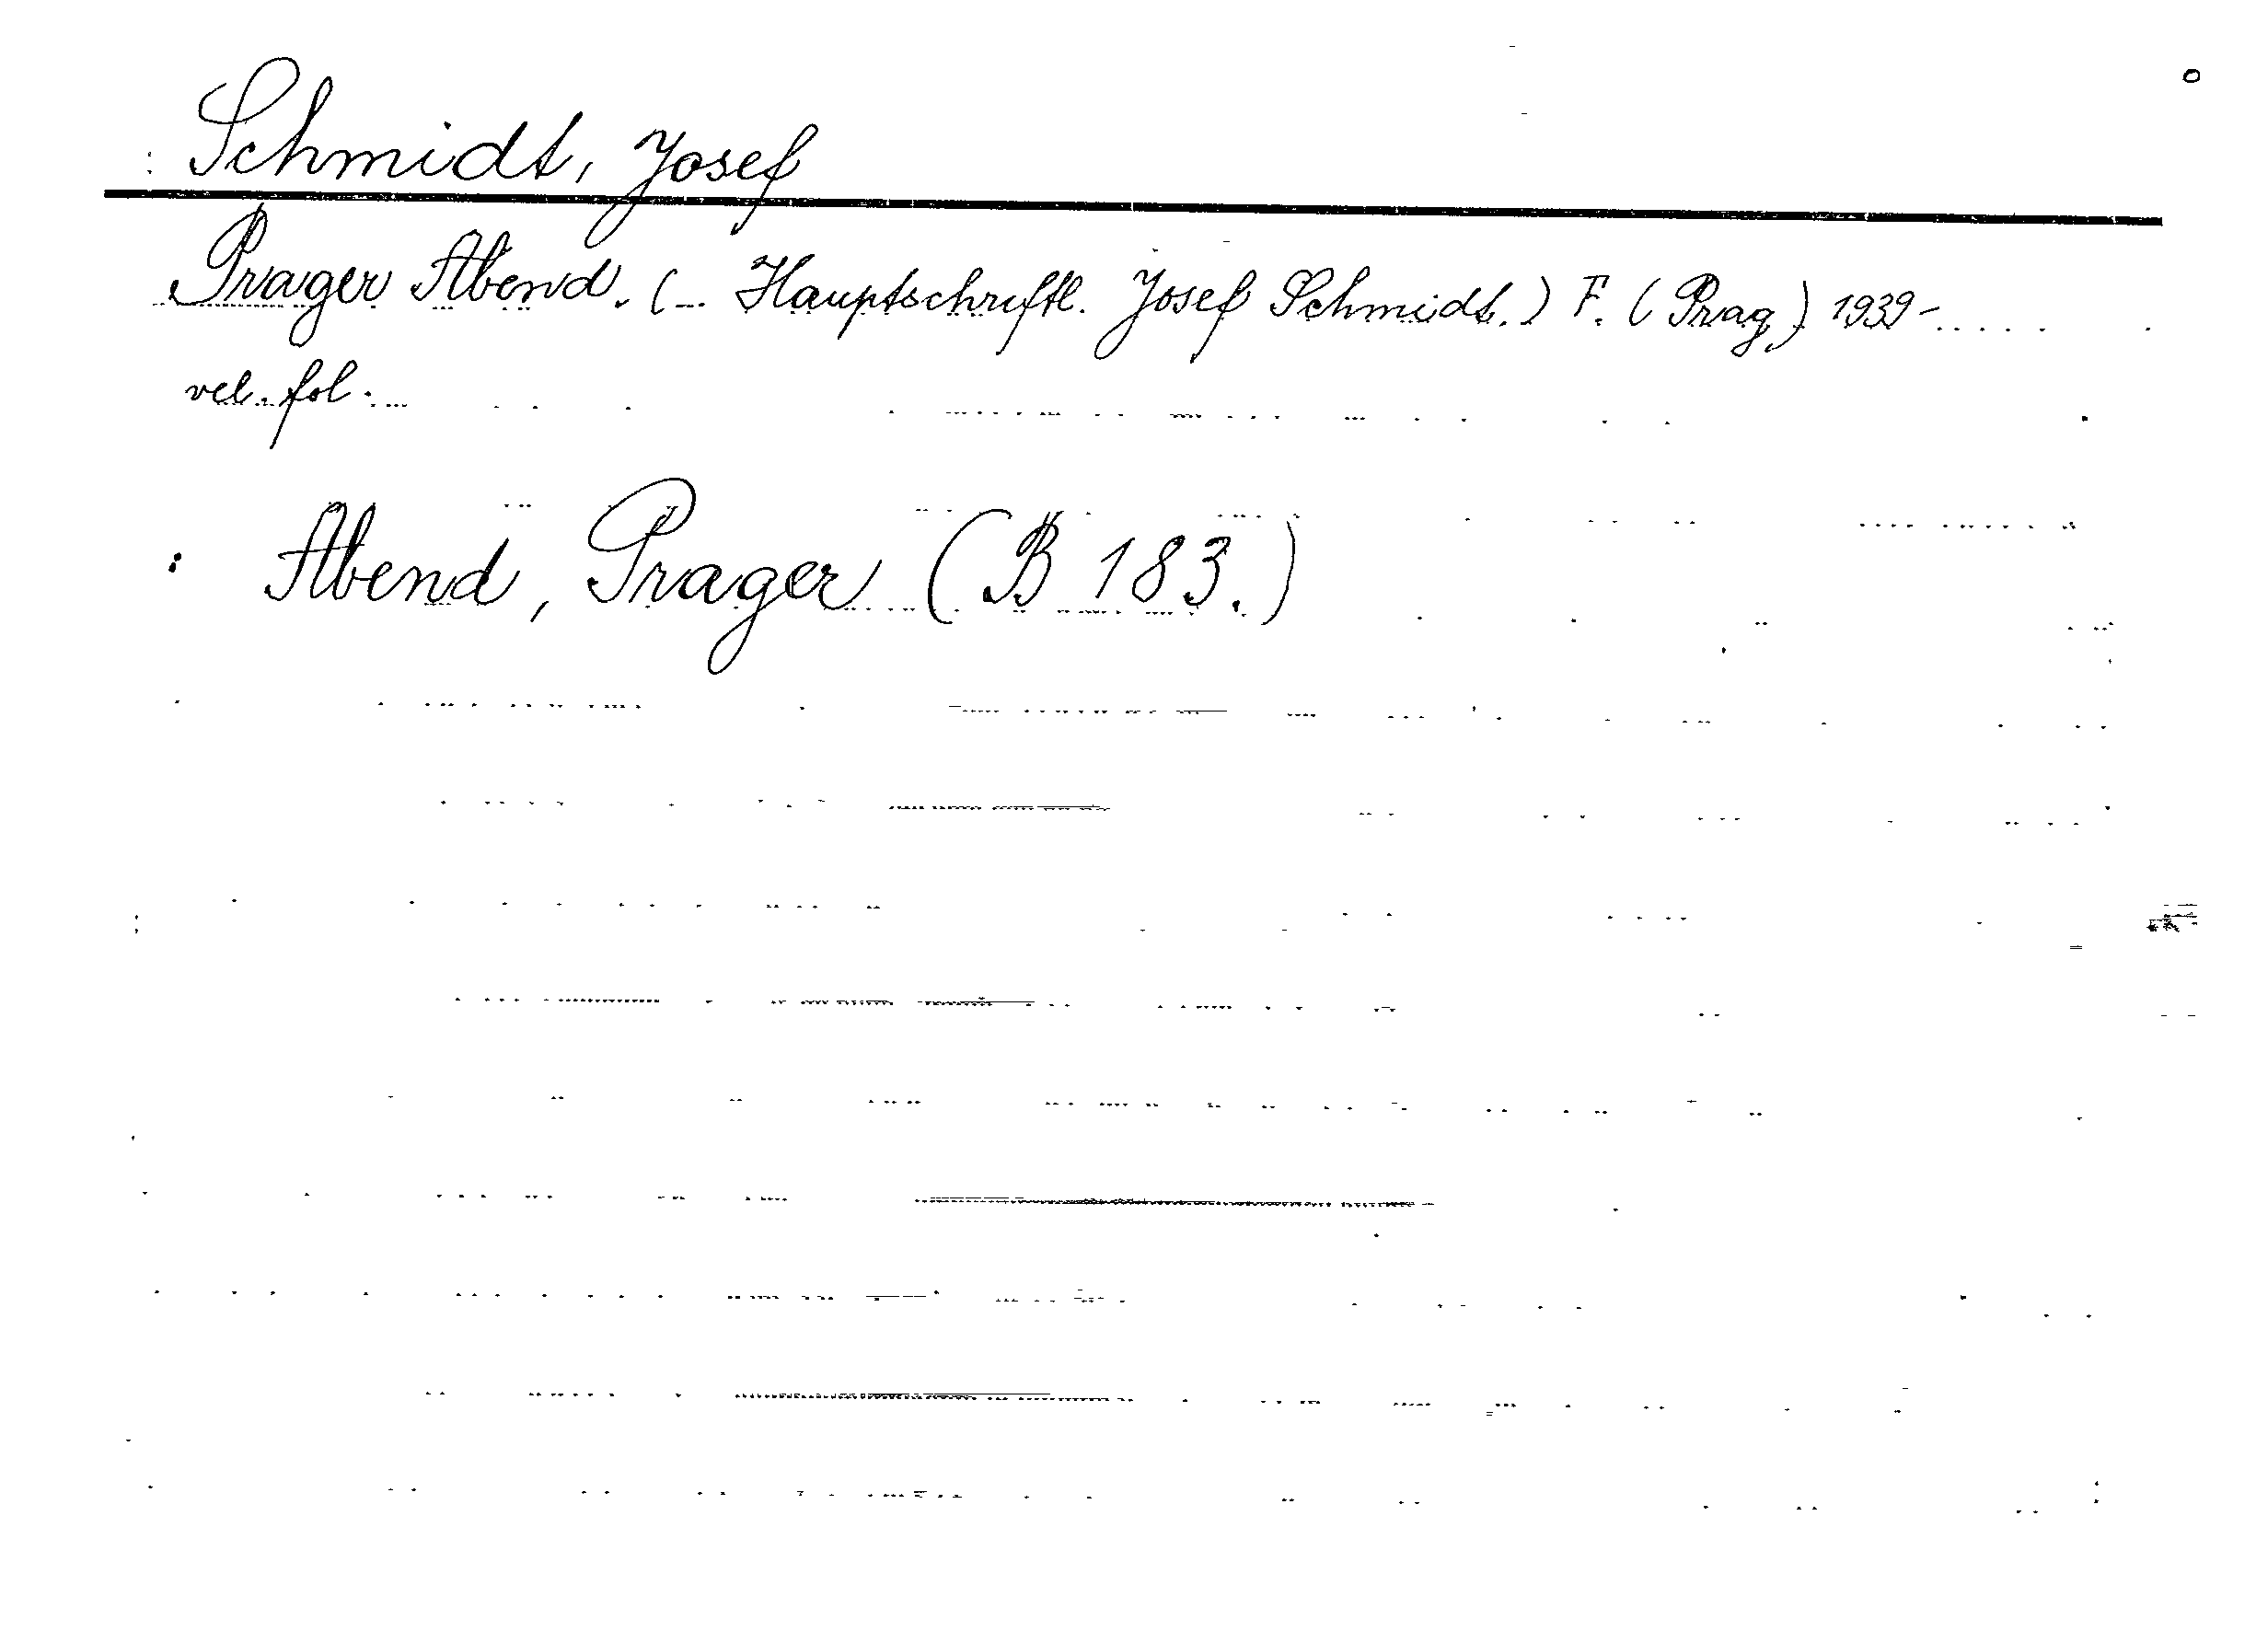 Schmidt, Josef
Prager Abend. (_. Hauptschriftl. Josef Schmidt.) F. (Prag) 1939-
vel. fol.
Abend, Prager (B 183.)